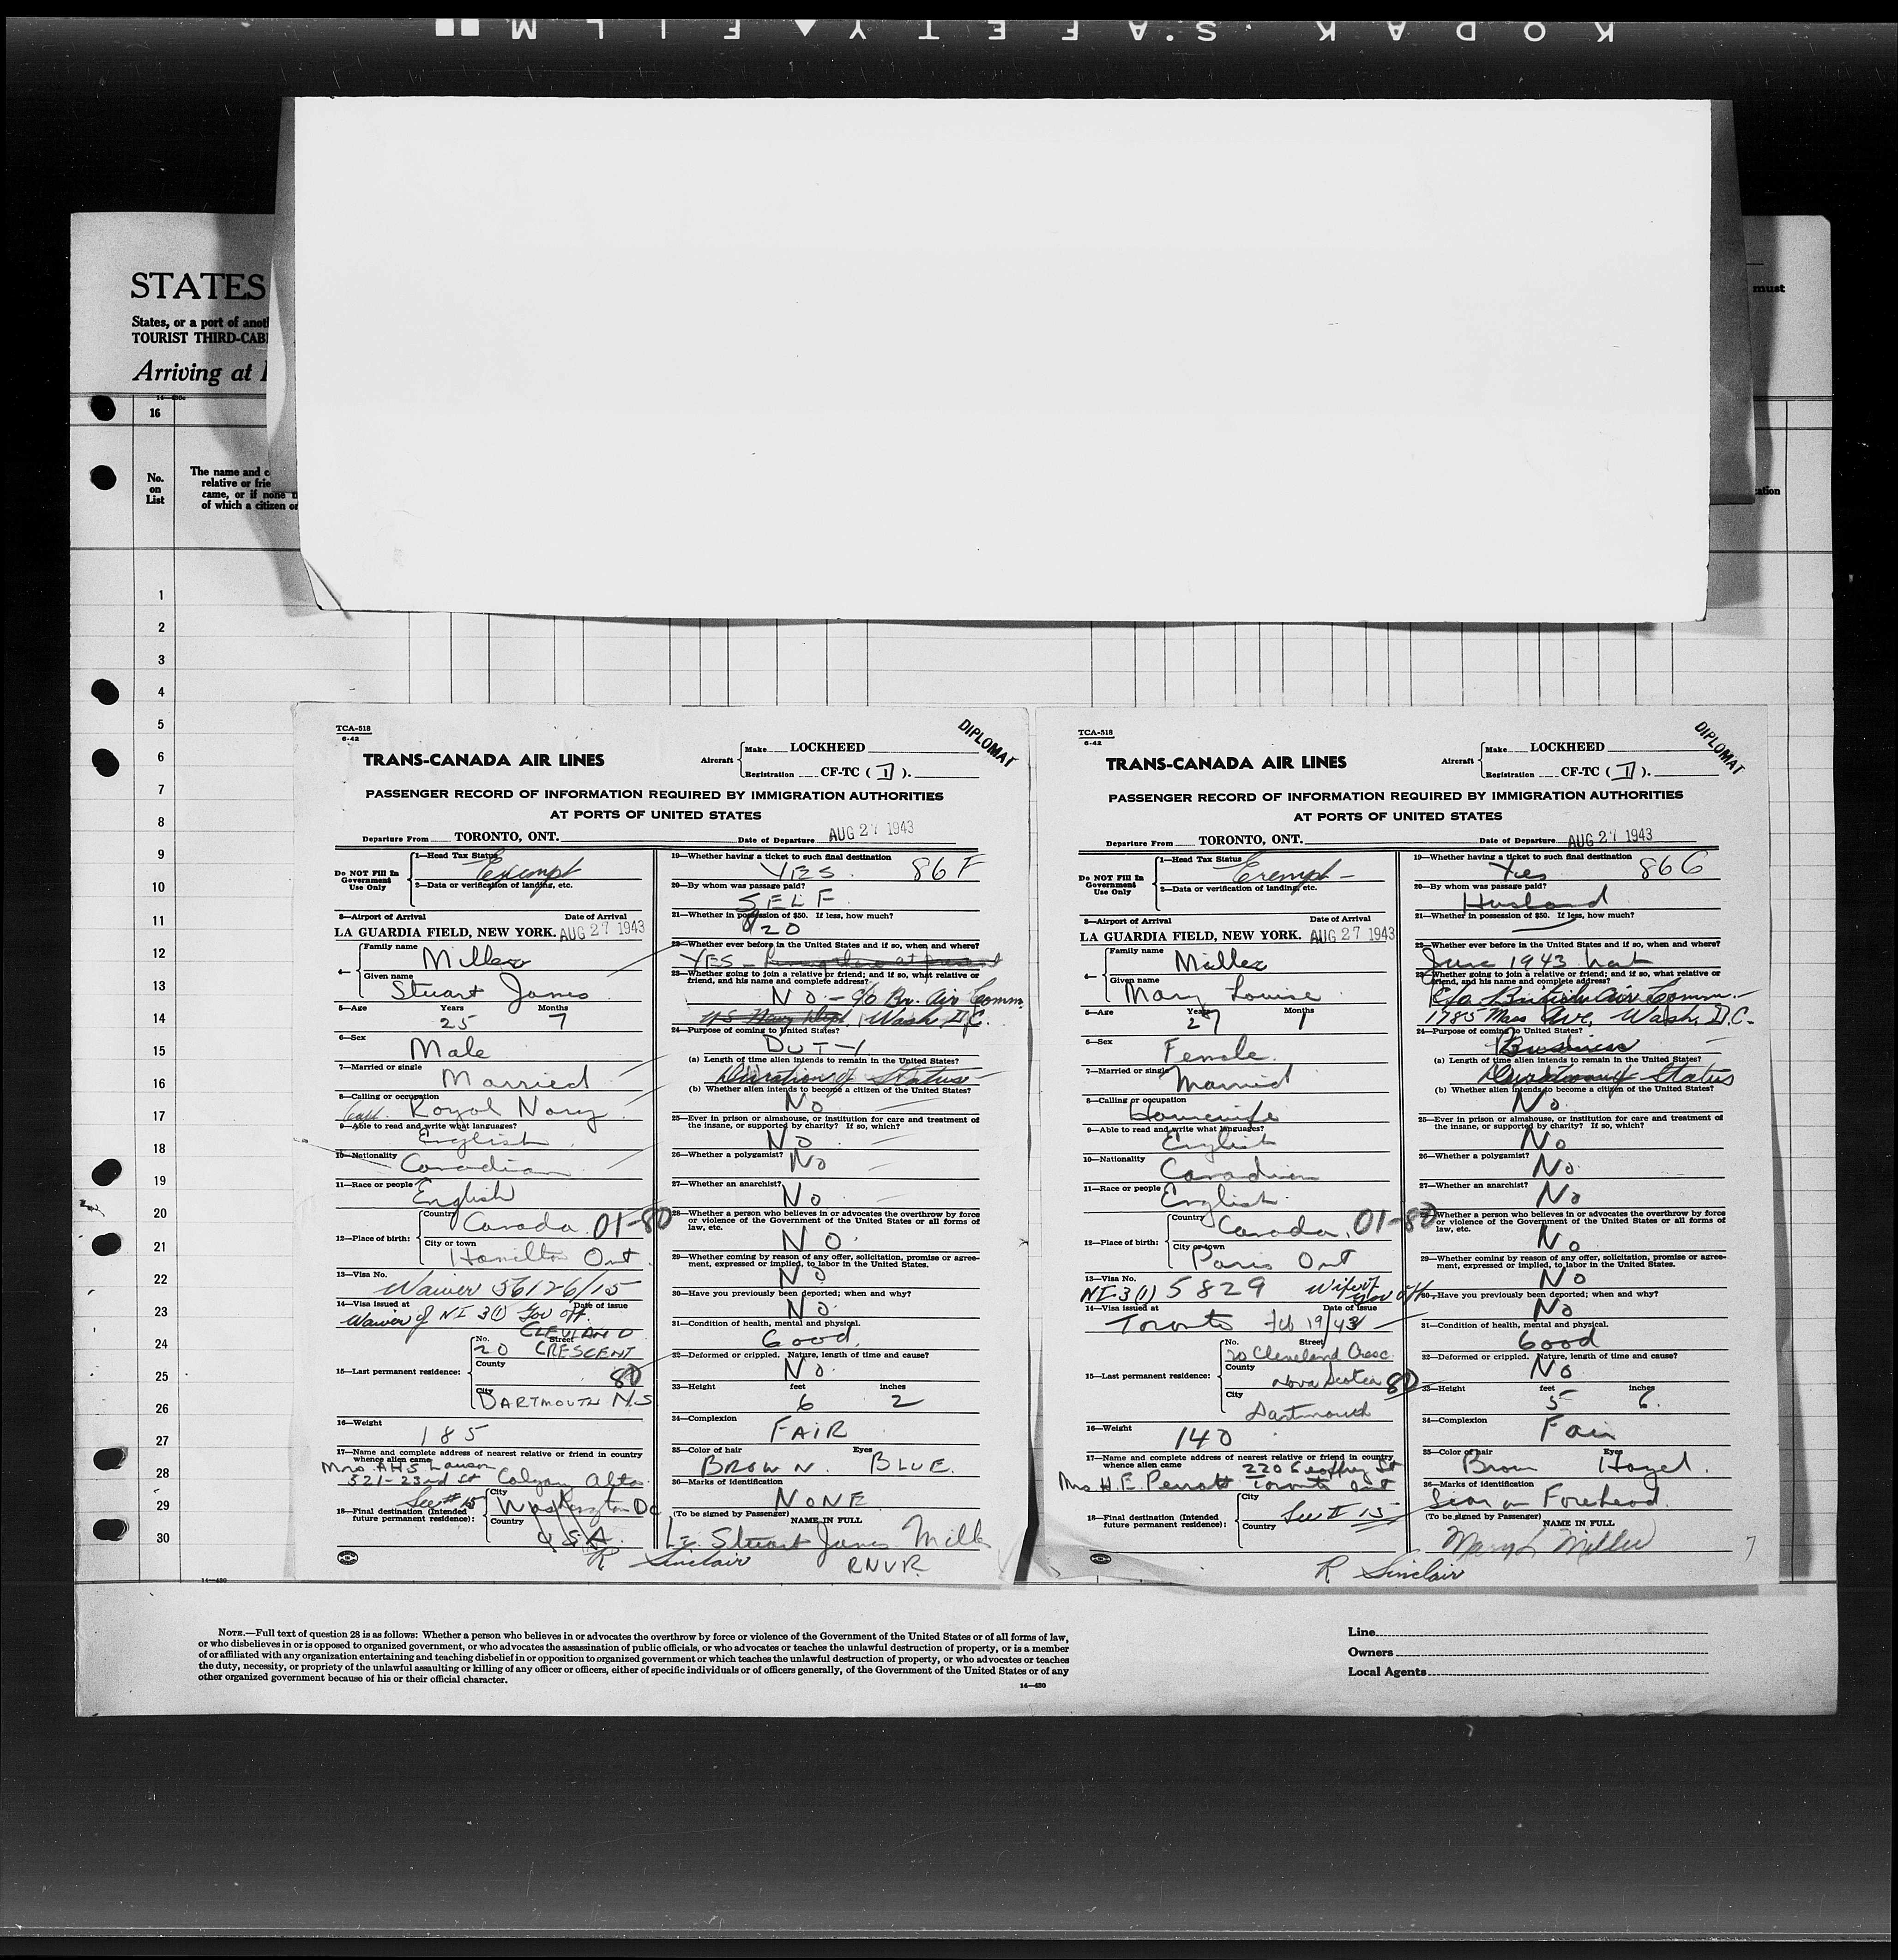 KODAK SAFETY FILM
STATES
States, or a port of anot
TOURIST THIRD-CAB
Arriving at
must
16
No.
on
List
The name and c
relative or frie
came, or if none
of which a citizen or
1
2
3
4
5
6
7
8
9
10
11
12
13
14
15
16
17
18
19
20
21
22
23
24
25
26
27
28
29
30
TCA-518
6-42
DIPLOMAT
TRANS-CANADA AIR LINES
Aircraft Make LOCKHEED
Registration CF-TC ( ).
PASSENGER RECORD OF INFORMATION REQUIRED BY IMMIGRATION AUTHORITIES
AT PORTS OF UNITED STATES
Departure From TORONTO, ONT. Date of Departure AUG 27 1943
Do NOT Fill In
Government
Use Only
1—Head Tax Status Exempt
2—Data or verification of landing, etc.
3—Airport of Arrival Date of Arrival
LA GUARDIA FIELD, NEW YORK. AUG 27 1943
4— Family name Miller
Given name Stuart James
5—Age Years 25 Months 7
6—Sex Male
7—Married or single Married
8—Calling or occupation Royal Navy
9—Able to read and write what languages? English
10—Nationality Canadian
11—Race or people English
12—Place of birth: Country Canada 01-80
City or town Hamilton Ont
13—Visa No. Waiver 56126/15
14—Visa issued at Date of issue
Waiver of NI 3(1) Gov off.
15—Last permanent residence: No. 20 Street CLEVLAND CRESCENT
County 80
City DARTMOUTH N.S
16—Weight 185
17—Name and complete address of nearest relative or friend in country
whence alien came
Mrs A.H.S Lawson
321-23rd St Calgary Alta
18—Final destination (Intended
future permanent residence): See #15
City Washington DC
Country USA
R Sinclair
19—Whether having a ticket to such final destination
YES. 86 F
20—By whom was passage paid?
SELF
21—Whether in possession of $50. If less, how much?
20
22—Whether ever before in the United States and if so, when and where?
YES
23—Whether going to join a relative or friend; and if so, what relative or
friend, and his name and complete address?
No - c/o Br. Air Comm.
US Navy Dept. Wash D.C.
24—Purpose of coming to United States?
DUTY
(a) Length of time alien intends to remain in the United States?
Duration of Status
(b) Whether alien intends to become a citizen of the United States?
No
25—Ever in prison or almshouse, or institution for care and treatment of
the insane, or supported by charity? If so, which?
No
26—Whether a polygamist? No
27—Whether an anarchist? No
28—Whether a person who believes in or advocates the overthrow by force
or violence of the Government of the United States or all forms of
law, etc.
NO
29—Whether coming by reason of any offer, solicitation, promise or agree-
ment, expressed or implied, to labor in the United States.
No
30—Have you previously been deported; when and why?
No
31—Condition of health, mental and physical.
Good
32—Deformed or crippled. Nature, length of time and cause?
No
33—Height feet 6 inches 2
34—Complexion FAIR
35—Color of hair BROWN Eyes BLUE
36—Marks of identification NONE
(To be signed by Passenger) NAME IN FULL
Lt. Stuart James Miller
RNVR
TCA-518
6-42
DIPLOMAT
TRANS-CANADA AIR LINES
Aircraft Make LOCKHEED
Registration CF-TC ( ).
PASSENGER RECORD OF INFORMATION REQUIRED BY IMMIGRATION AUTHORITIES
AT PORTS OF UNITED STATES
Departure From TORONTO, ONT. Date of Departure AUG 27 1943
Do NOT Fill In
Government
Use Only
1—Head Tax Status Exempt
2—Data or verification of landing, etc.
3—Airport of Arrival Date of Arrival
LA GUARDIA FIELD, NEW YORK. AUG 27 1943
4— Family name Miller
Given name Mary Louise
5—Age Years 27 Months 1
6—Sex Female
7—Married or single Married
8—Calling or occupation Housewife
9—Able to read and write what languages? English
10—Nationality Canadian
11—Race or people English
12—Place of birth: Country Canada, 01-80
City or town Paris Ont
13—Visa No. NI-3(1) 5829 Wife of Gov off
14—Visa issued at Toronto Date of issue Feb 19/43
15—Last permanent residence: No. Street 20 Cleveland Cresc.
County Nova Scotia 80
City Dartmouth
16—Weight 140
17—Name and complete address of nearest relative or friend in country
whence alien came 220 Geoffrey St
Mrs H.E. Perrott Toronto Ont
18—Final destination (Intended
future permanent residence): City See # 15
Country
R Sinclair
19—Whether having a ticket to such final destination
Yes 86 G
20—By whom was passage paid?
Husband
21—Whether in possession of $50. If less, how much?
22—Whether ever before in the United States and if so, when and where?
June 1943
23—Whether going to join a relative or friend; and if so, what relative or
friend, and his name and complete address?
c/o British Air Comm.
1785 Mass Ave, Wash, D.C.
24—Purpose of coming to United States?
Business
(a) Length of time alien intends to remain in the United States?
Duration of Status
(b) Whether alien intends to become a citizen of the United States?
No
25—Ever in prison or almshouse, or institution for care and treatment of
the insane, or supported by charity? If so, which?
No
26—Whether a polygamist? No
27—Whether an anarchist? No
28—Whether a person who believes in or advocates the overthrow by force
or violence of the Government of the United States or all forms of
law, etc.
No
29—Whether coming by reason of any offer, solicitation, promise or agree-
ment, expressed or implied, to labor in the United States.
No
30—Have you previously been deported; when and why?
No
31—Condition of health, mental and physical.
Good
32—Deformed or crippled. Nature, length of time and cause?
No
33—Height feet 5 inches 6
34—Complexion Fair
35—Color of hair Brown Eyes Hazel
36—Marks of identification Scar on Forehead
(To be signed by Passenger) NAME IN FULL
Mary L Miller
14—430
NOTE.—Full text of question 28 is as follows: Whether a person who believes in or advocates the overthrow by force or violence of the Government of the United States or of all forms of law,
or who disbelieves in or is opposed to organized government, or who advocates the assassination of public officials, or who advocates or teaches the unlawful destruction of property, or is a member
of or affiliated with any organization entertaining and teaching disbelief in or opposition to organized government or which teaches the unlawful destruction of property, or who advocates or teaches
the duty, necessity, or propriety of the unlawful assaulting or killing of any officer or officers, either of specific individuals or of officers generally, of the Government of the United States or of any
other organized government because of his or their official character.
14—430
Line
Owners
Local Agents